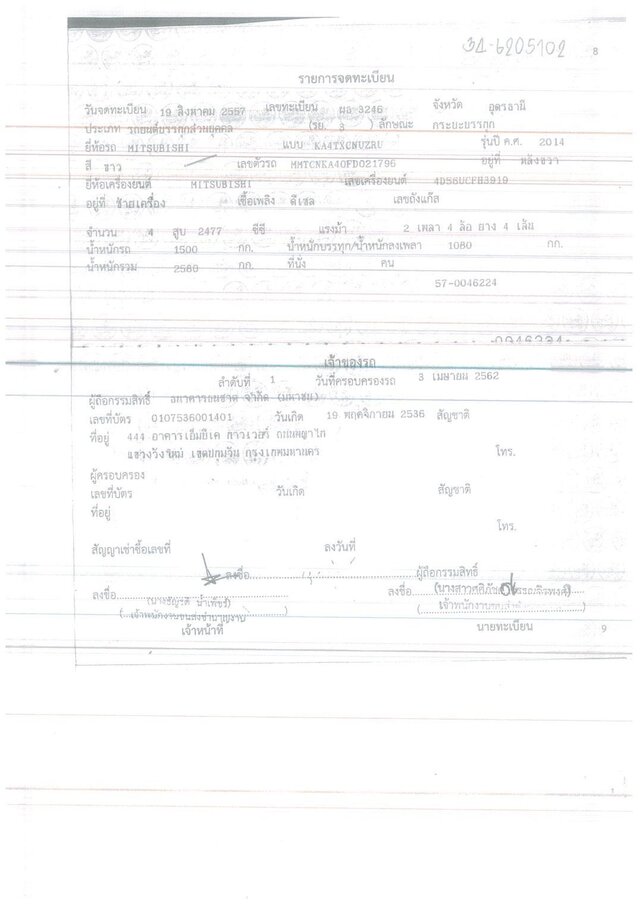 31-6205102 8
รายการจดทะเบียน
วันจดทะเบียน 19 สิงหาคม 2557 เลขทะเบียน ผล 3246 จังหวัด อุดรธานี
ประเภท รถยนต์บรรทุกส่วนบุคคล (รย. 3 ) ลักษณะ กระบะบรรทุก
ยี่ห้อรถ MITSUBISHI แบบ KA4TXCNUZRU รุ่นปี ค.ศ. 2014
สี ขาว เลขตัวรถ MMTCNKA40FD021796 อยู่ที่ หลังขวา
ยี่ห้อเครื่องยนต์ MITSUBISHI เลขเครื่องยนต์ 4D56UCFH3919
อยู่ที่ ซ้ายเครื่อง เชื้อเพลิง ดีเซล เลขถังแก๊ส
จำนวน 4 สูบ 2477 ซีซี แรงม้า 2 เพลา 4 ล้อ ยาง 4 เส้น
น้ำหนักรถ 1500 กก. น้ำหนักบรรทุก/น้ำหนักลงเพลา 1080 กก.
น้ำหนักรวม 2580 กก. ที่นั่ง คน
57-0046224
เจ้าของรถ
ลำดับที่ 1 วันที่ครอบครองรถ 3 เมษายน 2562
ผู้ถือกรรมสิทธิ์ ธนาคารธนชาต จำกัด (มหาชน)
เลขที่บัตร 0107536001401 วันเกิด 19 พฤศจิกายน 2536 สัญชาติ
ที่อยู่ 444 อาคารเอ็มบีเค ทาวเวอร์ ถนนพญาไท
แขวงวังใหม่ เขตปทุมวัน กรุงเทพมหานคร โทร.
ผู้ครอบครอง
เลขที่บัตร วันเกิด สัญชาติ
ที่อยู่
โทร.
สัญญาเช่าซื้อเลขที่ ลงวันที่
ลงชื่อ ผู้ถือกรรมสิทธิ์
ลงชื่อ ลงชื่อ
เจ้าหน้าที่ นายทะเบียน 9